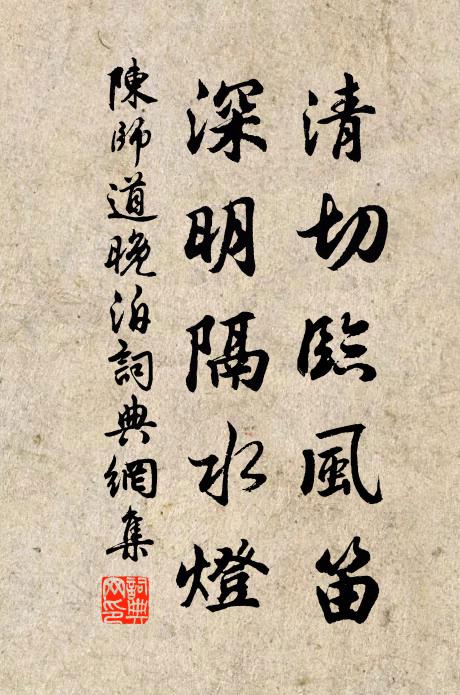 清切臨風笛
深明隔水燈
陳師道晚泊詞典網集
詞典網印